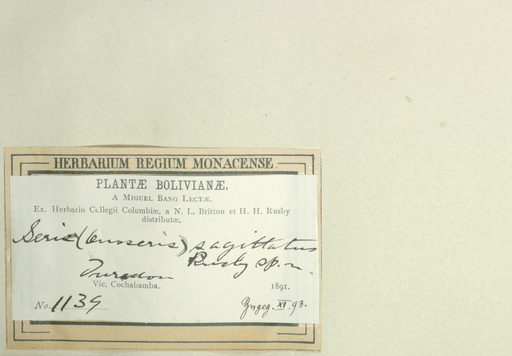 HERBARIUM REGIUM MONACENSE
PLANTÆ BOLIVIANÆ.
A MIGUEL BANG LECTÆ.
Ex. Herbario Collegii Columbiæ, a N. L. Britton et H. H. Rusby
distributæ.
Seris (Onoseris) sagittatus
Rusby sp. n
Vic. Cochabamba. 1891.
No. 1139
Zngeg. XI. 93.